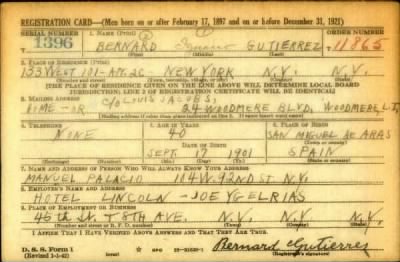 REGISTRATION CARD—(Men born on or after February 17, 1897 and on or before December 31, 1921)
SERIAL NUMBER 1. NAME (Print) ORDER NUMBER
1396 BERNARD GUTIERREZ 11865
(First) (Middle) (Last)
2. PLACE OF RESIDENCE (Print)
153 WEST 101- NEW YORK N.Y. N.Y.
(Number and street) (Town, township, village, or city) (County) (State)
[THE PLACE OF RESIDENCE GIVEN ON THE LINE ABOVE WILL DETERMINE LOCAL BOARD
JURISDICTION; LINE 2 OF REGISTRATION CERTIFICATE WILL BE IDENTICAL]
3. MAILING ADDRESS
C/O LOUIS JACOBS,
HOME-OR 24 WOODMERE BLVD. WOODMERE L.I.
4. TELEPHONE 5. AGE IN YEARS 6. PLACE OF BIRTH
NONE 40 SAN MIGUEL DE ARAS
DATE OF BIRTH
SEPT. 17 1901 SPAIN
(Exchange) (Number) (Mo.) (Day) (Yr.) (State or country)
7. NAME AND ADDRESS OF PERSON WHO WILL ALWAYS KNOW YOUR ADDRESS
MANUEL PALACIO 104 W. 92ND ST N.Y.
8. EMPLOYER'S NAME AND ADDRESS
HOTEL LINCOLN - JOE
9. PLACE OF EMPLOYMENT OR BUSINESS
45th St. + 8TH AVE. N.Y. N.Y. N.Y.
(Number and street or R. F. D. number) (Town) (County) (State)
I AFFIRM THAT I HAVE VERIFIED ABOVE ANSWERS AND THAT THEY ARE TRUE.
D. S. S. Form 1
(Revised 1-1-42)
Bernard Gutierrez
(Registrant's signature)